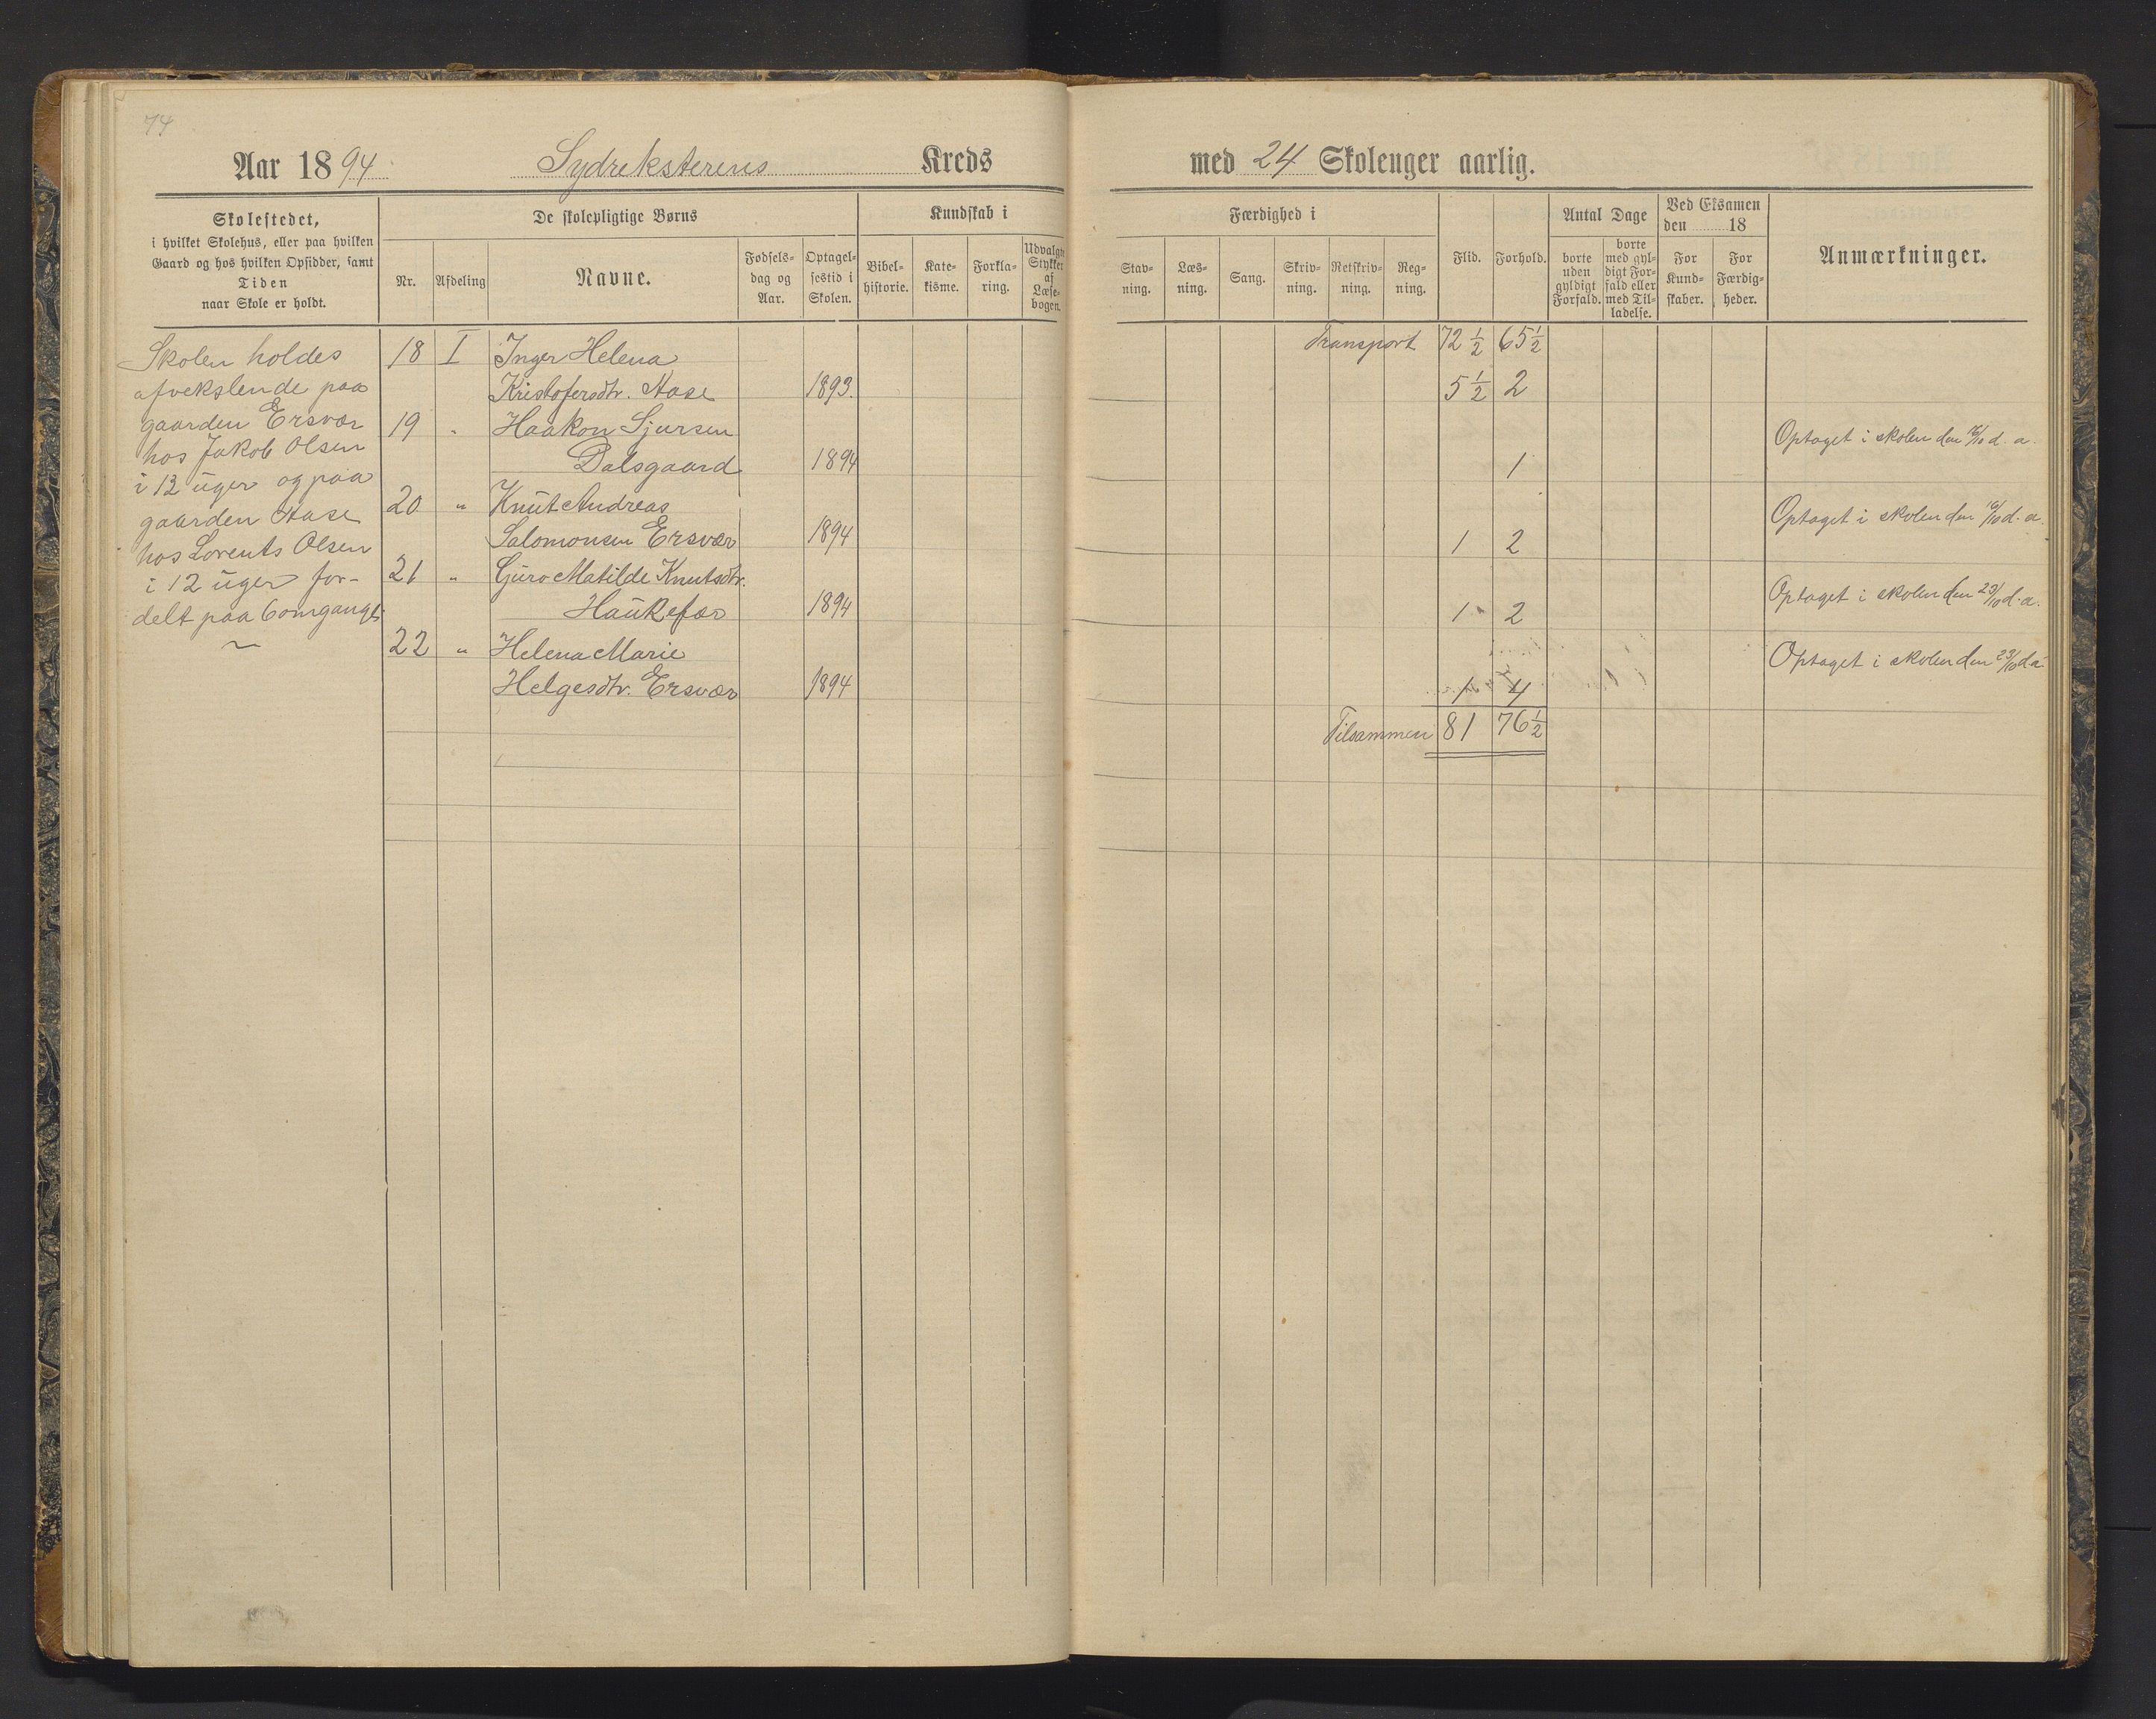 74
Aar 1894 Sydreksterens Kreds
med 24 Skolenger aarlig.
Skolestedet,
i hvilket Skolehus, eller paa hvilken
Gaard og hos hvilken Opsidder, samt
Tiden
naar Skole er holdt.
De skolepligtige Børns
Nr.
Afdeling
Navne.
Fødsels-
dag og
Aar.
Optagel-
sestid i
Skolen.
Kundskab i
Bibel-
historie.
Kate-
kisme.
Forkla-
ring.
Udvalgte
Stykker
af
Læse-
bogen.
Færdighed i
Stav-
ning.
Læs-
ning.
Sang.
Skriv-
ning.
Retskriv-
ning.
Reg-
ning.
Flid.
Forhold.
Antal Dage
borte
uden
gyldigt
Forfald.
borte
med gyl-
digt For-
fald eller
med Til-
ladelse.
Ved Eksamen
den 18
For
Kund-
skaber.
For
Færdig-
heder.
Anmærkninger.
Skolen holdes
afvekslende paa
gaarden Ersvær
hos Jakob Olsen
i 12 uger og paa
gaarden Aase
hos Lorents Olsen
i 12 uger for-
delt paa 6 omgange
Transport 72 1/2 65 1/2
18 I Inger Helena
Kristofersdtr. Aase 1893. 5 1/2 2
19 " Haakon Sjursen Optaget i skolen den d. a.
Dalsgaard 1894 1
20 " Knut Andreas Optaget i skolen den 16/10 d. a.
Salomonsen Ersvær 1894 1 2
21 " Guro Matilde Knutsdtr. Optaget i skolen den 23/10 d. a.
Haukefær 1894 1 2
22 " Helena Marie Optaget i skolen den 23/10 d a
Helgesdtr. Ersvær 1894 1 4
Tilsammen 81 76 1/2